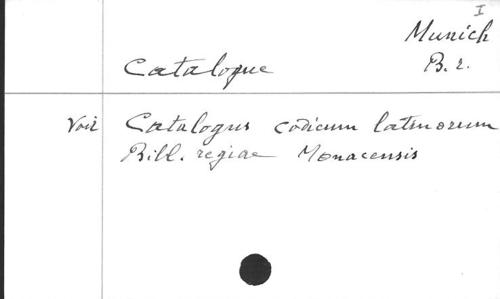 I
Munich
Catalogue B. r.
Voir Catalogus codicum latinorum
Bibl. regiae Monacensis